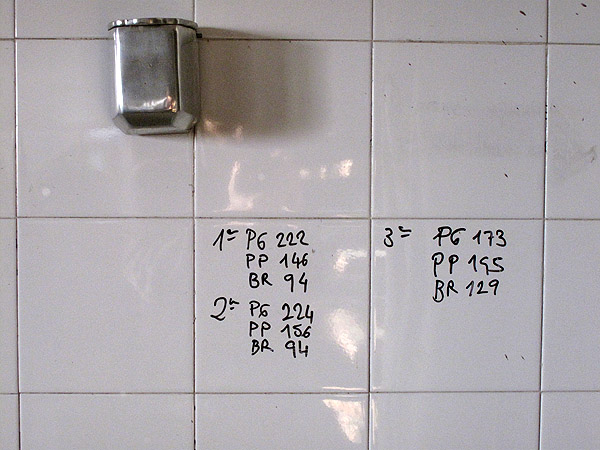 1ª PG 222
PP 146
BR 94
2ª PG 224
PP 156
BR 94
3ª PG 173
PP 195
BR 129